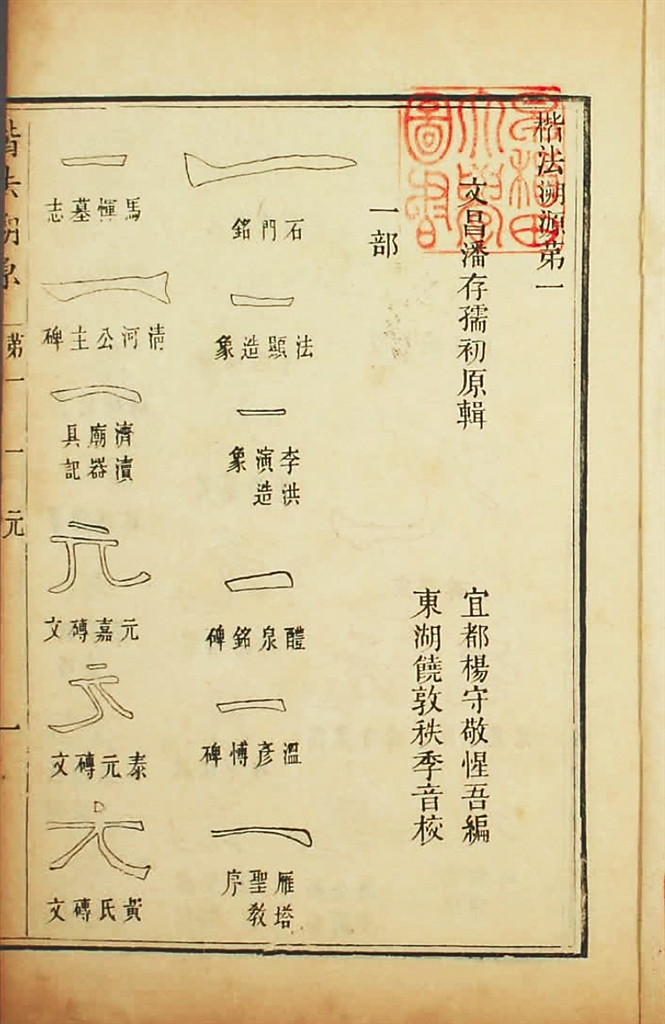 早稻田
大學
圖書
楷法溯源第一
文昌潘存孺初原輯
宜都楊守敬惺吾編
東湖饒敦秩季音校
一部
一
石門銘
一
法顯造象
一
李洪演造象
一
醴泉銘碑
一
溫彥博碑
一
雁塔聖教序
一
馬惲墓志
一
清河公主碑
一
濟瀆廟器具記
元
元嘉磚文
元
泰元磚文
元
黃氏磚文
楷法溯原 第一 一 元 一